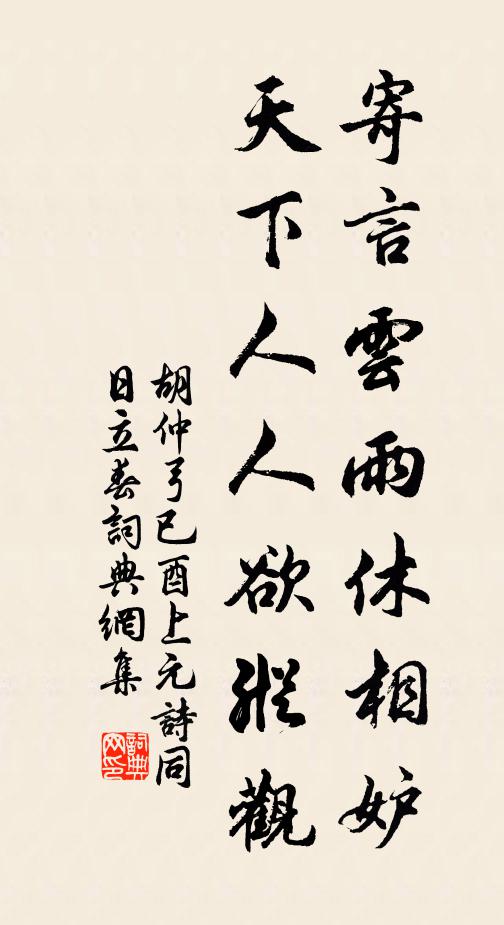 寄言雲雨休相妒
天下人人欲縱觀
胡仲弓已酉上元詩同
日立春詞典網集
詞典网印